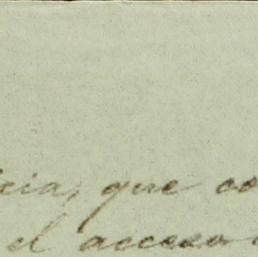 icia, que co
el acceso